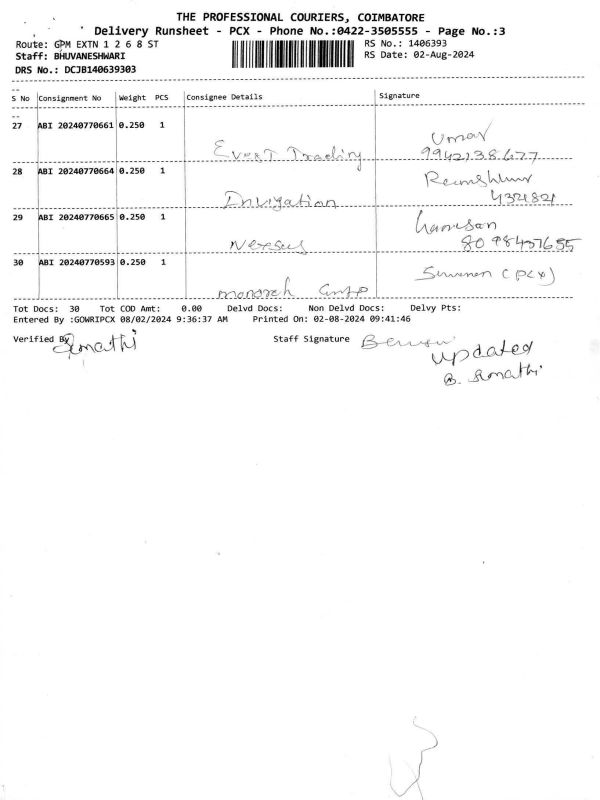 THE PROFESSIONAL COURIERS, COIMBATORE
Delivery Runsheet - PCX - Phone No.:0422-3505555 - Page No.:3
Route: GPM EXTN 1 2 6 8 ST RS No.: 1406393
Staff: BHUVANESHWARI RS Date: 02-Aug-2024
DRS No.: DCJB140639303
S No Consignment No Weight PCS Consignee Details Signature
27 ABI 20240770661 0.250 1 Umar
Trading 9942138677
28 ABI 20240770664 0.250 1
4321821
29 ABI 20240770665 0.250 1 harrison
Nexsus 8098437655
30 ABI 20240770593 0.250 1 (pcx)
monarch
Tot Docs: 30 Tot COD Amt: 0.00 Delvd Docs: Non Delvd Docs: Delvy Pts:
Entered By :GOWRIPCX 08/02/2024 9:36:37 AM Printed On: 02-08-2024 09:41:46
Verified By Sumathi Staff Signature
updated
B. Sumathi